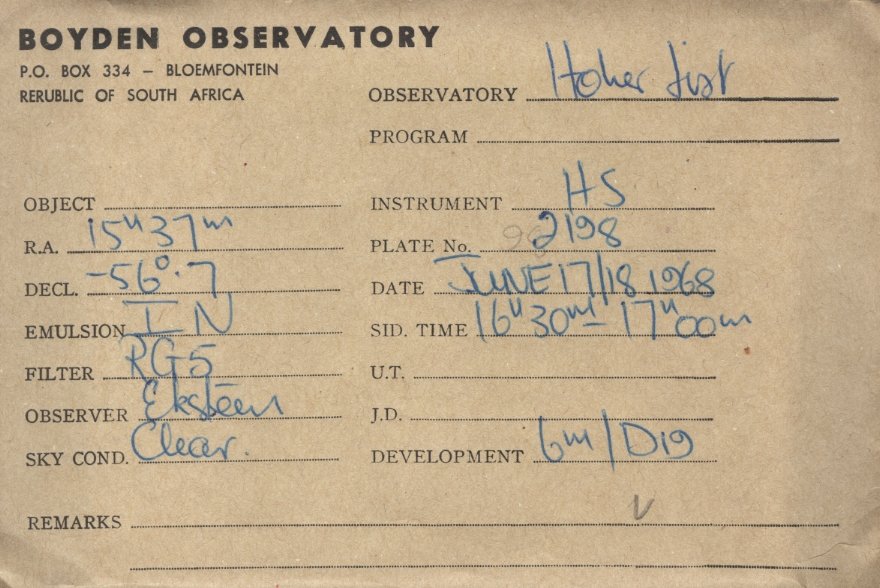 BOYDEN OBSERVATORY
P.O. BOX 334 – BLOEMFONTEIN
RERUBLIC OF SOUTH AFRICA
OBSERVATORY Hoher List
PROGRAM
OBJECT
INSTRUMENT HS
R.A. 15ʰ37ᵐ
PLATE No. 2198
DECL. -56°.7
DATE JUNE 17/18 1968
EMULSION I N
SID. TIME 16ʰ30ᵐ – 17ʰ00ᵐ
FILTER RG5
U.T.
OBSERVER Eksteen
J.D.
SKY COND. Clear.
DEVELOPMENT 6ᵐ/D19
REMARKS